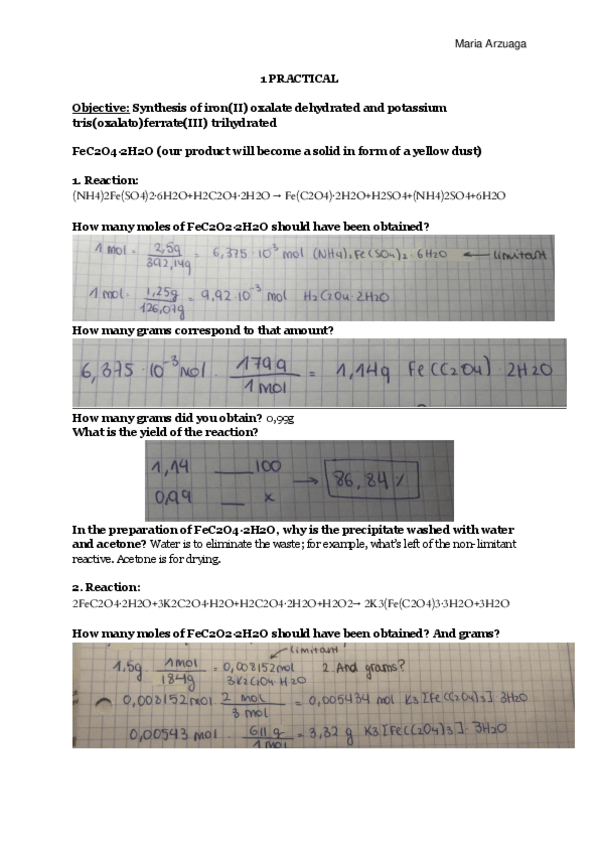 Maria Arzuaga
1 PRACTICAL
Objective: Synthesis of iron(II) oxalate dehydrated and potassium
tris(oxalato)ferrate(III) trihydrated
FeC2O4·2H2O (our product will become a solid in form of a yellow dust)
1. Reaction:
(NH4)2Fe(SO4)2·6H2O+H2C2O4·2H2O → Fe(C2O4)·2H2O+H2SO4+(NH4)2SO4+6H2O
How many moles of FeC2O2·2H2O should have been obtained?
1 mol · 2,5g / 392,14g = 6,375·10⁻³ mol (NH4)2Fe(SO4)2·6H2O ← limitant
1 mol · 1,25g / 126,07g = 9,92·10⁻³ mol H2C2O4·2H2O
How many grams correspond to that amount?
6,375·10⁻³ mol · 179g / 1 mol = 1,14g Fe(C2O4)·2H2O
How many grams did you obtain? 0,99g
What is the yield of the reaction?
1,14 ___ 100
0,99 ___ x → 86,84%
In the preparation of FeC2O4·2H2O, why is the precipitate washed with water
and acetone? Water is to eliminate the waste; for example, what's left of the non-limitant
reactive. Acetone is for drying.
2. Reaction:
2FeC2O4·2H2O+3K2C2O4·H2O+H2C2O4·2H2O+H2O2→ 2K3(Fe(C2O4)3·3H2O+3H2O
How many moles of FeC2O2·2H2O should have been obtained? And grams?
limitant
1,5g · 1 mol / 184g = 0,008152 mol 3K2C2O4·H2O 2. And grams?
0,008152 mol · 2 mol / 3 mol = 0,005434 mol K3[Fe(C2O4)3]·3H2O
0,00543 mol · 611 g / 1 mol = 3,32 g K3[Fe(C2O4)3]·3H2O